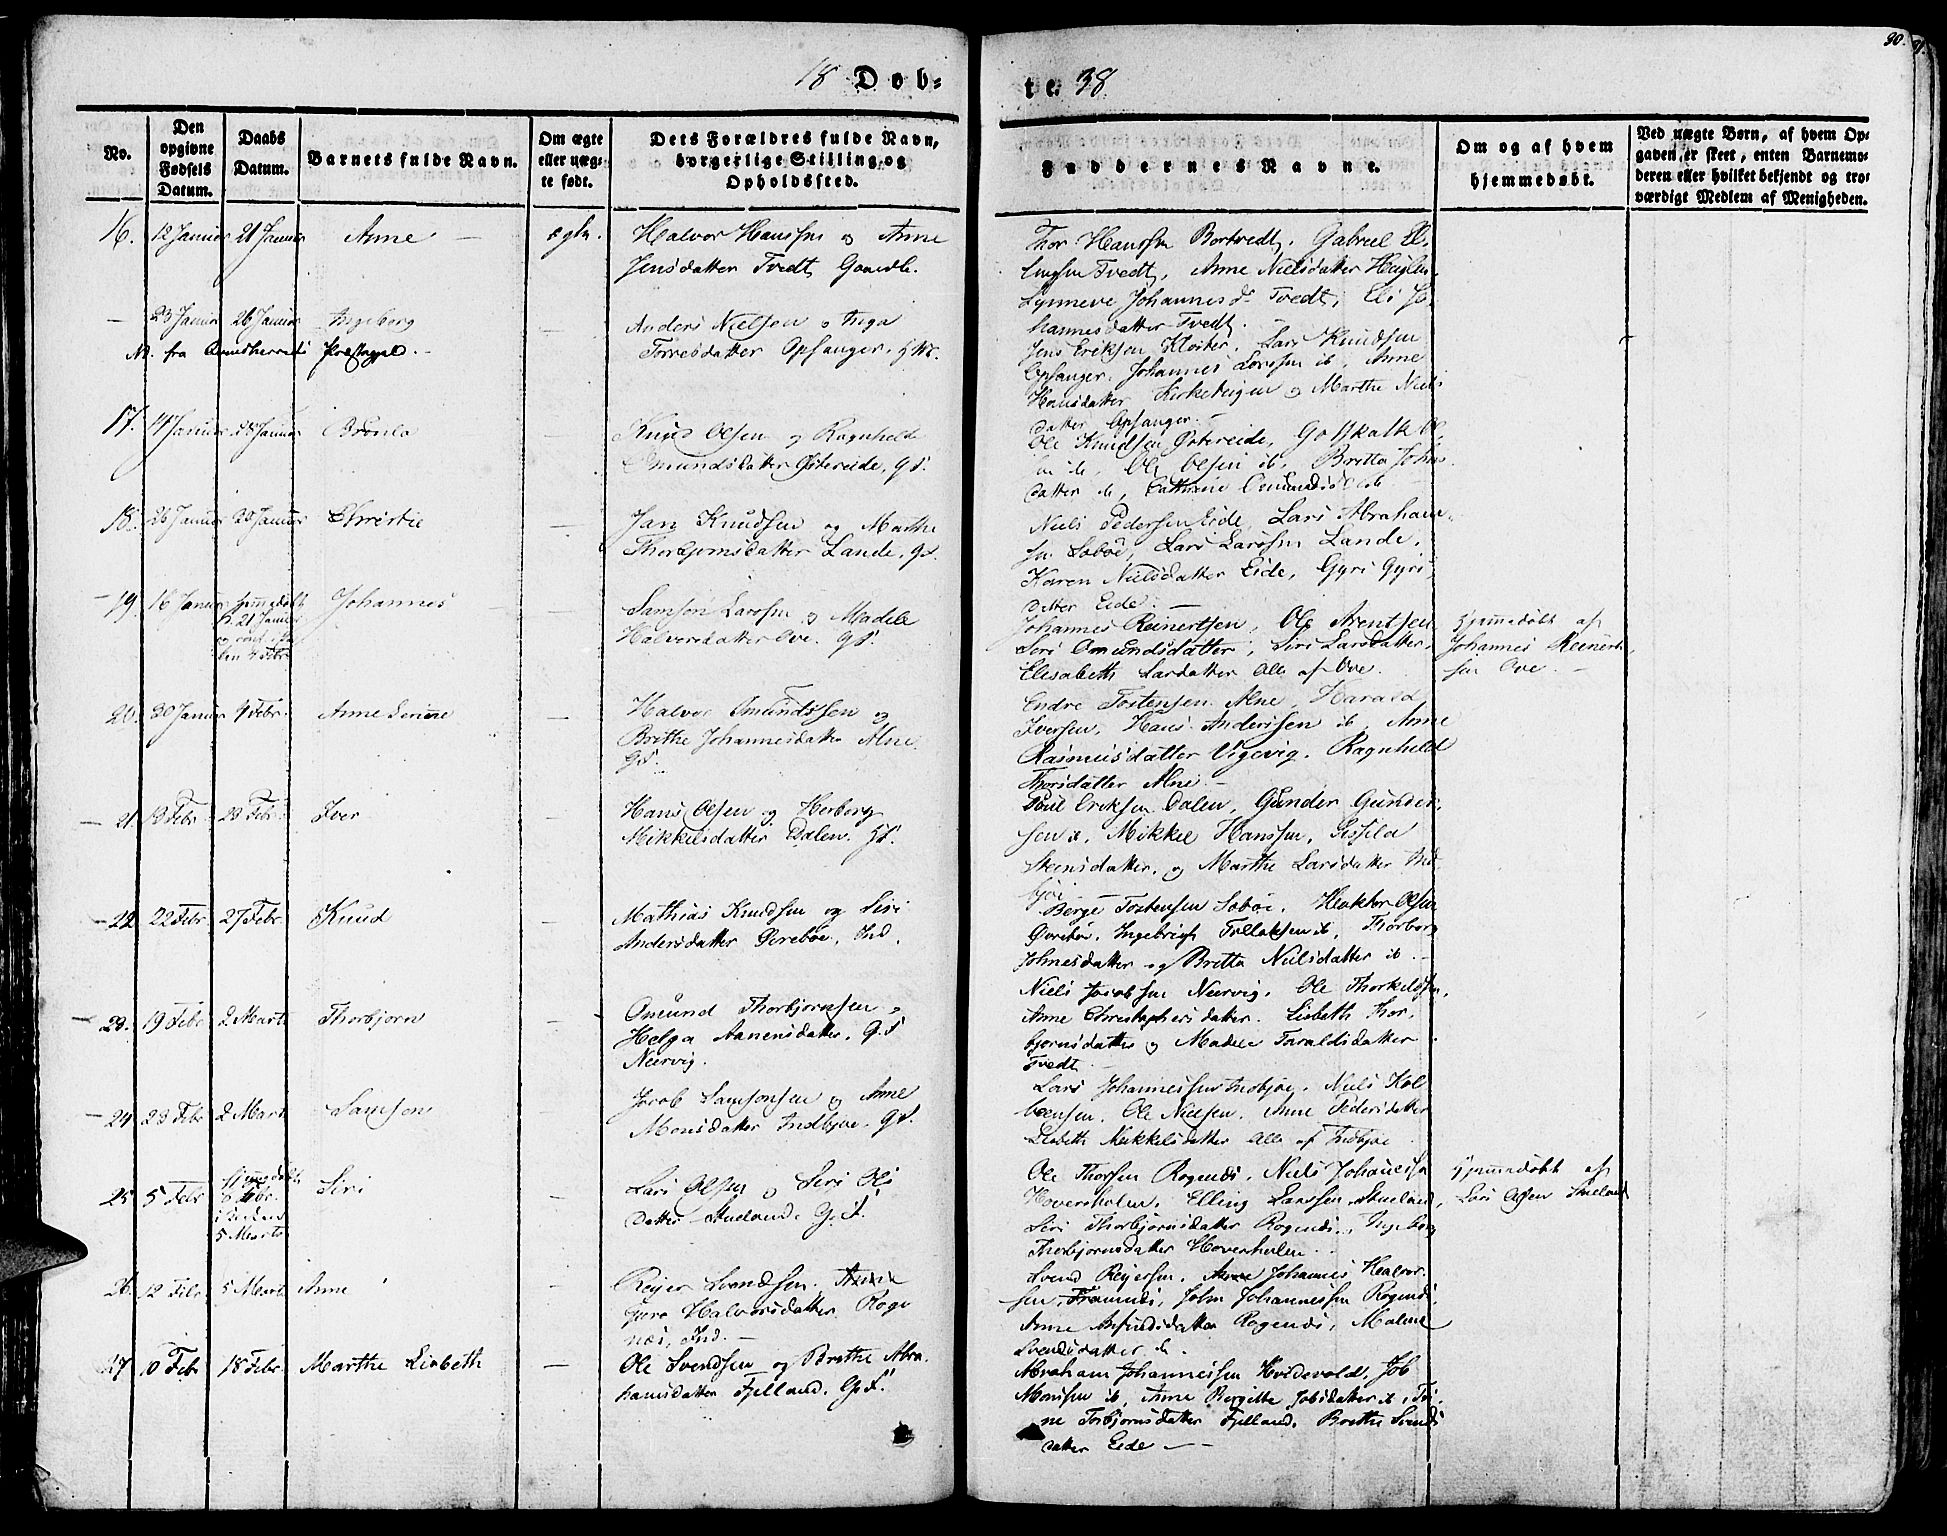 18 Døb-
te 38
30.
No.
Den opgivne Fødsels Datum.
Daabs Datum.
Barnets fulde Navn.
Om ægte eller uæg- te født.
Dets Forældres fulde Navn, borgerlige Stilling og Opholdssted.
Fadbernes Navne.
Om og af hvem hjemmedøbt.
Ved uægte Børn, af hvem Op- gaven er skeet, enten Barnemo- deren eller hvilket bekjendt og tro- værdigt Medlem af Menigheden.
16. 12 Januar 21 Januar Anne — ægte.
Halvor Hanssen og Anne
Jensdatter Tvedt,
Thor Hanssen Gabriel El-
lingsen Tvedt, Anne Nielsdatter
Synneve Johannesd. Tvedt, Eli Jo-
hannesdatter Tvedt.
— 23 Januar 26 Januar Ingeborg —
NB. fra Præstegjeld.
Anders Nielsen o Inga
Torresdatter Opsanger,
Jens Eriksen Kloster, Lars Knudsen
Opsanger, Johannes Larssen ib, Anne
Hansdatter og Marthe Niels
datter Opsanger. —
17. 14 Januar 28 Januar —
Knud Olsen og Ragnhilde
Omundsdatter Østereide, GS.
Ole Knudsen Østereide, Gotskalk Ol-
Ole Olsen ib, Britta Johns
datter ib, Cathrine
18. 26 Januar 28 Januar Christie —
Jan Knudsen og Marthe
Thorbjørnsdatter Lande, GS.
Niels Pedersen Eide, Lars Abraham-
sen Søbøe, Lars Larssen Lande,
Karen Nielsdatter Eide, Gyri Gyri-
datter Eide. —
19. 16 Januar hjemmedøbt
d. 21 Januar
den 4 Febr
Johannes —
Samson Larssen og Madele
Halvorsdatter Ove. GS.
Johannes Reinertsen, Ole Arentsen
Siri Omundsdatter, Siri Larsdatter,
Elisabeth Larsdatter Alle af Ove.
Hjemmedøbt af
Johannes Reinert-
sen Ove. —
20. 30 Januar 4 Febr. Anne —
Halvor Omundssen og
Brithe Johannesdatter Alne
GS.
Endre Tostensen Alne, Harald
Iversen, Hans Anderssen ib, Anne
Rasmusdatter Vigevig, Ragnhild
Thorsdatter Alne —
21. 13 Febr 23 Febr. Iver —
Hans Olsen og Herborg
Mikkelsdatter Dalen.
Poul Eriksen Dalen, Gunder Gunder-
sen ib, Mikkel Hanssen, Sissela
Stensdatter, og Marthe Larsdatter Ind-
bjøe —
22 22 Febr 27 Febr. Knud —
Mathias Knudsen og Siri
Andersdatter Ind.
Børge Tostensen Søbøe, Haktor Olsen
Ingebrigt Tollaksen ib, Thorborg
Johnesdatter og Britta Nielsdatter ib —
23. 19 Febr 2 Marts Thorbjørn —
Omund Thorbjørnsen o
Helga Aanensdatter, G.S
Neervig.
Niels Jacobsen Neervig, Ole Thorkildsen,
Anne Christophersdatter, Lisbeth Thor-
bjørnsdatter og Madele Taraldsdatter
Tvedt —
24 23 Febr 2 Marts Samson —
Jacob Samsonsen og Anne
Monsdatter Indbjøe, GS.
Lars Johannessen Indbjøe, Niels Kol-
beensen, Ole Nielsen, Anne Pedersdatter
Lisbeth Mikkelsdatter Alle af Indbjøe
25 5 Febr hjemmedøbt
8 Febr.
i Kirken
5 Marts
Siri —
Lars Olsen og Siri Ols
datter Stueland. G.S.
Ole Thorsen Rogenæs, Niels Johannessen
Hoversholm, Elling Larssen Stueland,
Siri Thorbjørnsdatter Rogenæs, Ingeborg
Thorbjørnsdatter
Hjemmedøbt af
Lars Olsen Stueland
26. 12 Febr. 5 Marts Anne —
Reier Svendsen,
Halvorsdatter Roge
næs, Ind. —
Svend Reiersen, Johannes Halvor-
sen, John Johannessen Rogenæs,
Anne Rogenæs, Malene
Svendsdatter ib.
27 10 Febr 18 Febr. Marthe Lisbeth —
Ole Svendsen og Brithe Abra-
hamsdatter Fjelland, G.S.
Abraham Johannessen Job
Monsen ib, Anne Bergitte Jobsdatter ib, Tri-
ne Torbjørnsdatter Fjelland, Brithe Svends
datter Eide — —